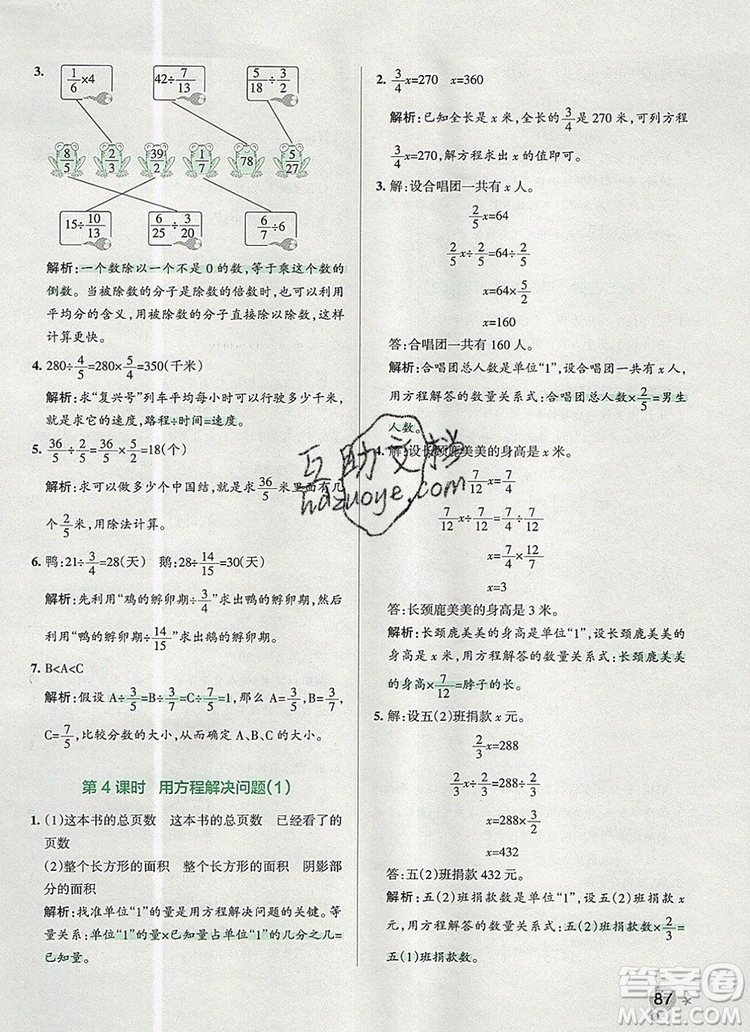 3. 1/6×4 42÷7/13 5/18÷3/2
8/5 2/3 39/2 1/7 78 5/27
15÷10/13 6/25÷3/20 6/7÷6
解析:一个数除以一个不是0的数,等于乘这个数的
倒数。当被除数的分子是除数的倍数时,也可以利用
平均分的含义,用被除数的分子直接除以除数,这样
计算更快。
4. 280÷4/5=280×5/4=350(千米)
解析:求“复兴号”列车平均每小时可以行驶多少千米,
就是求它的速度,路程÷时间=速度。
5. 36/5÷2/5=36/5×5/2=18(个)
解析:求可以做多少个中国结,就是求36/5米里面有几
个2/5米,用除法计算。
6. 鸭:21÷3/4=28(天) 鹅:28÷14/15=30(天)
解析:先利用“鸡的孵卵期÷3/4”求出鸭的孵卵期,然
后利用“鸭的孵卵期÷14/15”求出鹅的孵卵期。
7. B<A<C
解析:假设A÷3/5=B÷3/7=C÷7/5=1,那么A=3/5,B=3/7,
C=7/5,比较分数的大小,从而确定A、B、C的大小。
第4课时 用方程解决问题(1)
1. (1)这本书的总页数 这本书的总页数 已经看了的
页数
(2)整个长方形的面积 整个长方形的面积 阴影部
分的面积
解析:找准单位“1”的量是用方程解决问题的关键。等
量关系:单位“1”的量×已知量占单位“1”的几分之几=
已知量。
2. 3/4x=270 x=360
解析:已知全长是x米,全长的3/4是270米,可列方程
3/4x=270,解方程求出x的值即可。
3. 解:设合唱团一共有x人。
2/5x=64
2/5x÷2/5=64÷2/5
x=64×5/2
x=160
答:合唱团一共有160人。
解析:合唱团总人数是单位“1”,设合唱团总人数为x,
用方程解答的数量关系式:合唱团总人数×2/5=男生
人数。
4. 解:设长颈鹿美美的身高是x米。
7/12x=7/4
7/12x÷7/12=7/4÷7/12
x=7/4×12/7
x=3
答:长颈鹿美美的身高是3米。
解析:长颈鹿美美的身高是单位“1”,设长颈鹿美美的
身高为x米,用方程解答的数量关系式:长颈鹿美美
的身高×7/12=脖子的长。
5. 解:设五(2)班捐款x元。
2/3x=288
2/3x÷2/3=288÷2/3
x=288×3/2
x=432
答:五(2)班捐款432元。
解析:五(2)班捐款数是单位“1”,设五(2)班捐款x
元,用方程解答的数量关系式:五(2)班捐款数×2/3=
五(1)班捐款数。
87
互助文档
hdzuoye.com
答案圈
MXQE.COM